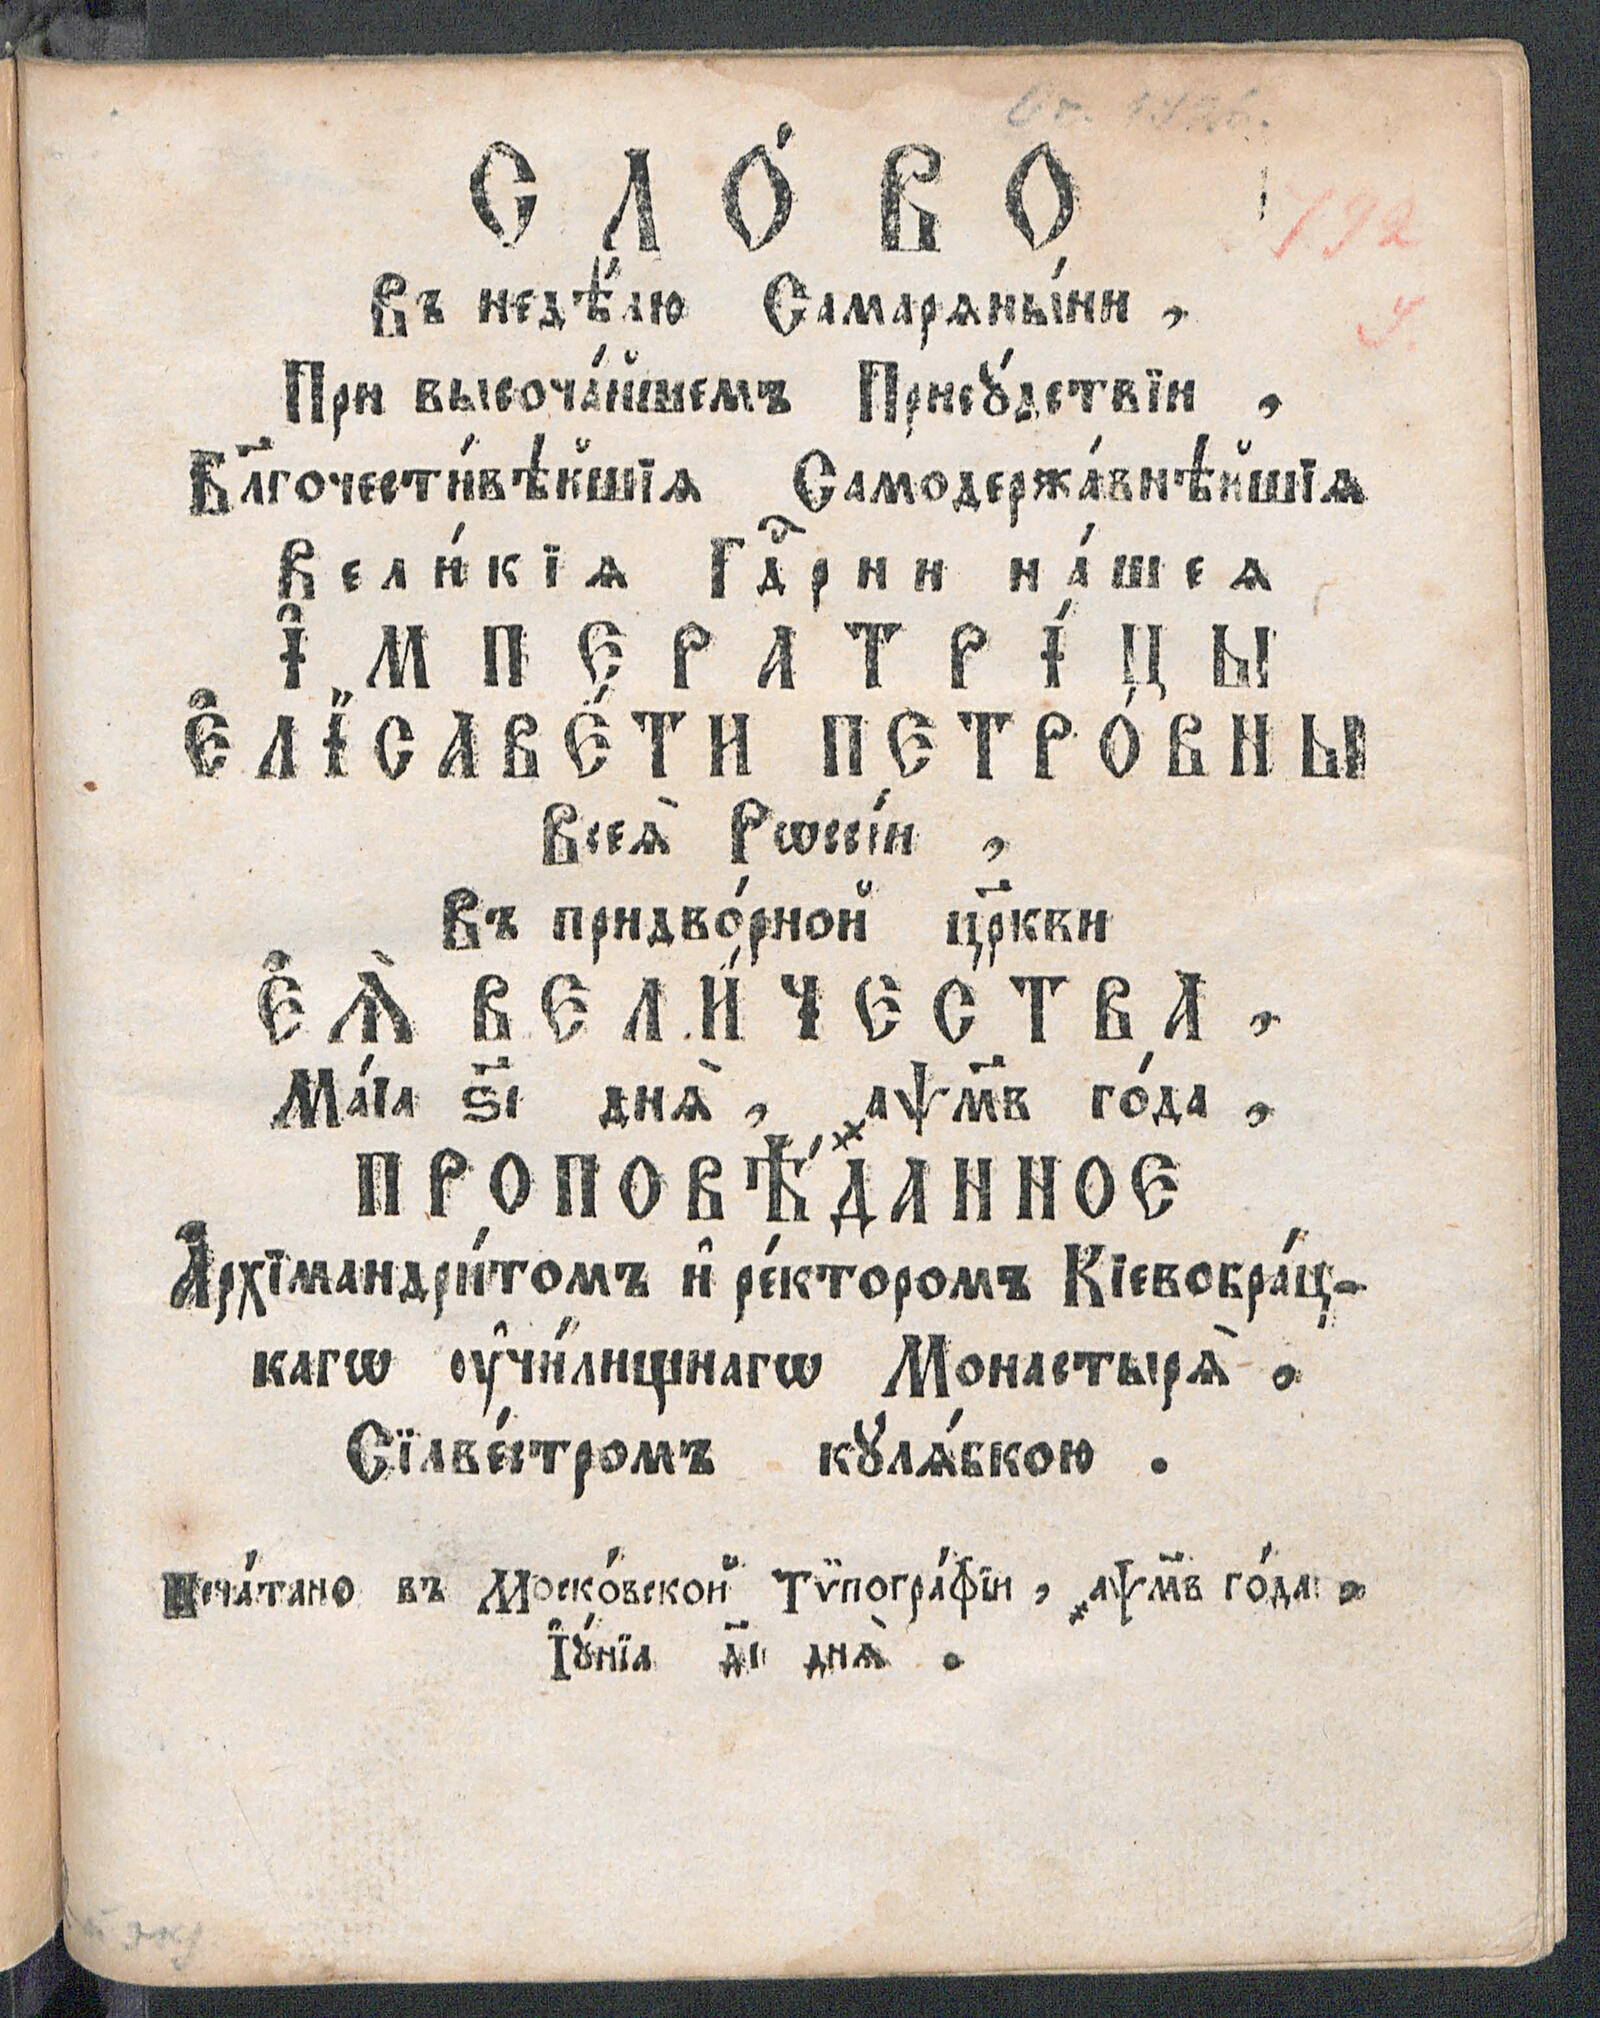 792
СЛО́ВО
Въ недѣ́лю Самарѧны́ни,
При высоча́йшемъ Присꙋ́дствїи,
Бл҃гочести́вѣйшїѧ Самодержа́внѣйшїѧ
Вели́кїѧ Гд҇рни на́шеѧ
І҆МПЕРАТРІ́ЦЫ
Е҆ЛЇСАВЕ́ТИ ПЕТРО́ВНЫ
Всеѧ̀ Рѡссі́и,
Въ придво́рной цр҃кви
Е҆Ѧ̀ ВЕЛИ́ЧЕСТВА,
Ма́їа ѕ҃і днѧ̀, ҂аѱм҃в го́да,
ПРОПОВѢ́ДАННОЕ
А҆рхїмандри́томъ и҆ ре́кторомъ Кїевобра́ц-
кагѡ ᲂу҆чи́лищнагѡ Монастырѧ̀.
Сїлве́стромъ кꙋлѧ́бкою.
Печа́тано въ Моско́вской Тѷпогра́фїи, ҂аѱм҃в го́да.
І҆ꙋ́нїа д҃і днѧ̀.